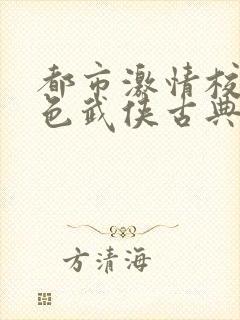 都市激情校
色武侠古典
方清海